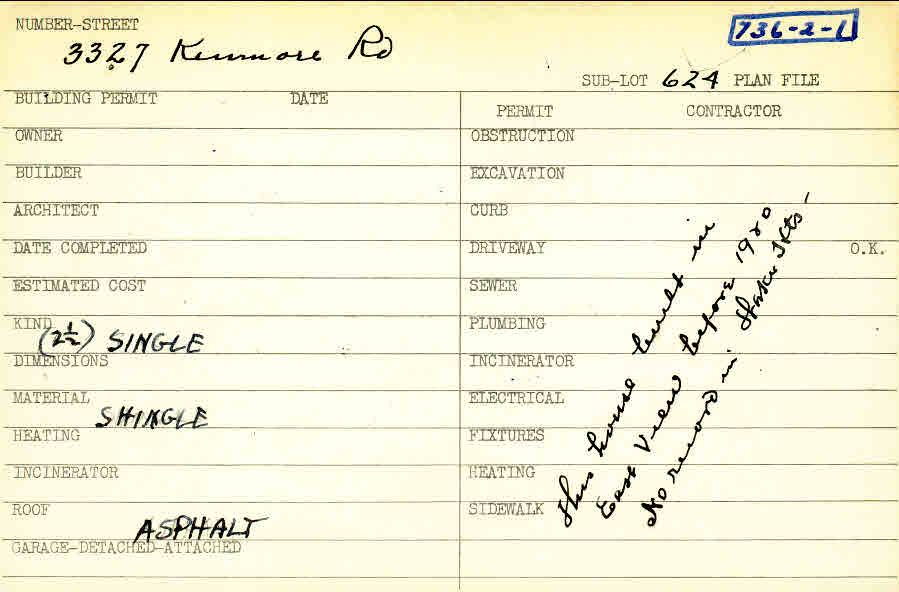 NUMBER-STREET
3327 Kenmore Rd
736-2-1
SUB-LOT 624 PLAN FILE
BUILDING PERMIT DATE
PERMIT CONTRACTOR
OWNER
OBSTRUCTION
BUILDER
EXCAVATION
ARCHITECT
CURB
DATE COMPLETED
DRIVEWAY O.K.
ESTIMATED COST
SEWER
KIND
(2½) SINGLE
PLUMBING
DIMENSIONS
INCINERATOR
MATERIAL
SHINGLE
ELECTRICAL
HEATING
FIXTURES
INCINERATOR
HEATING
ROOF
ASPHALT
SIDEWALK
GARAGE-DETACHED-ATTACHED
This house built in
East View before 1920
No record in Shaker Hts-